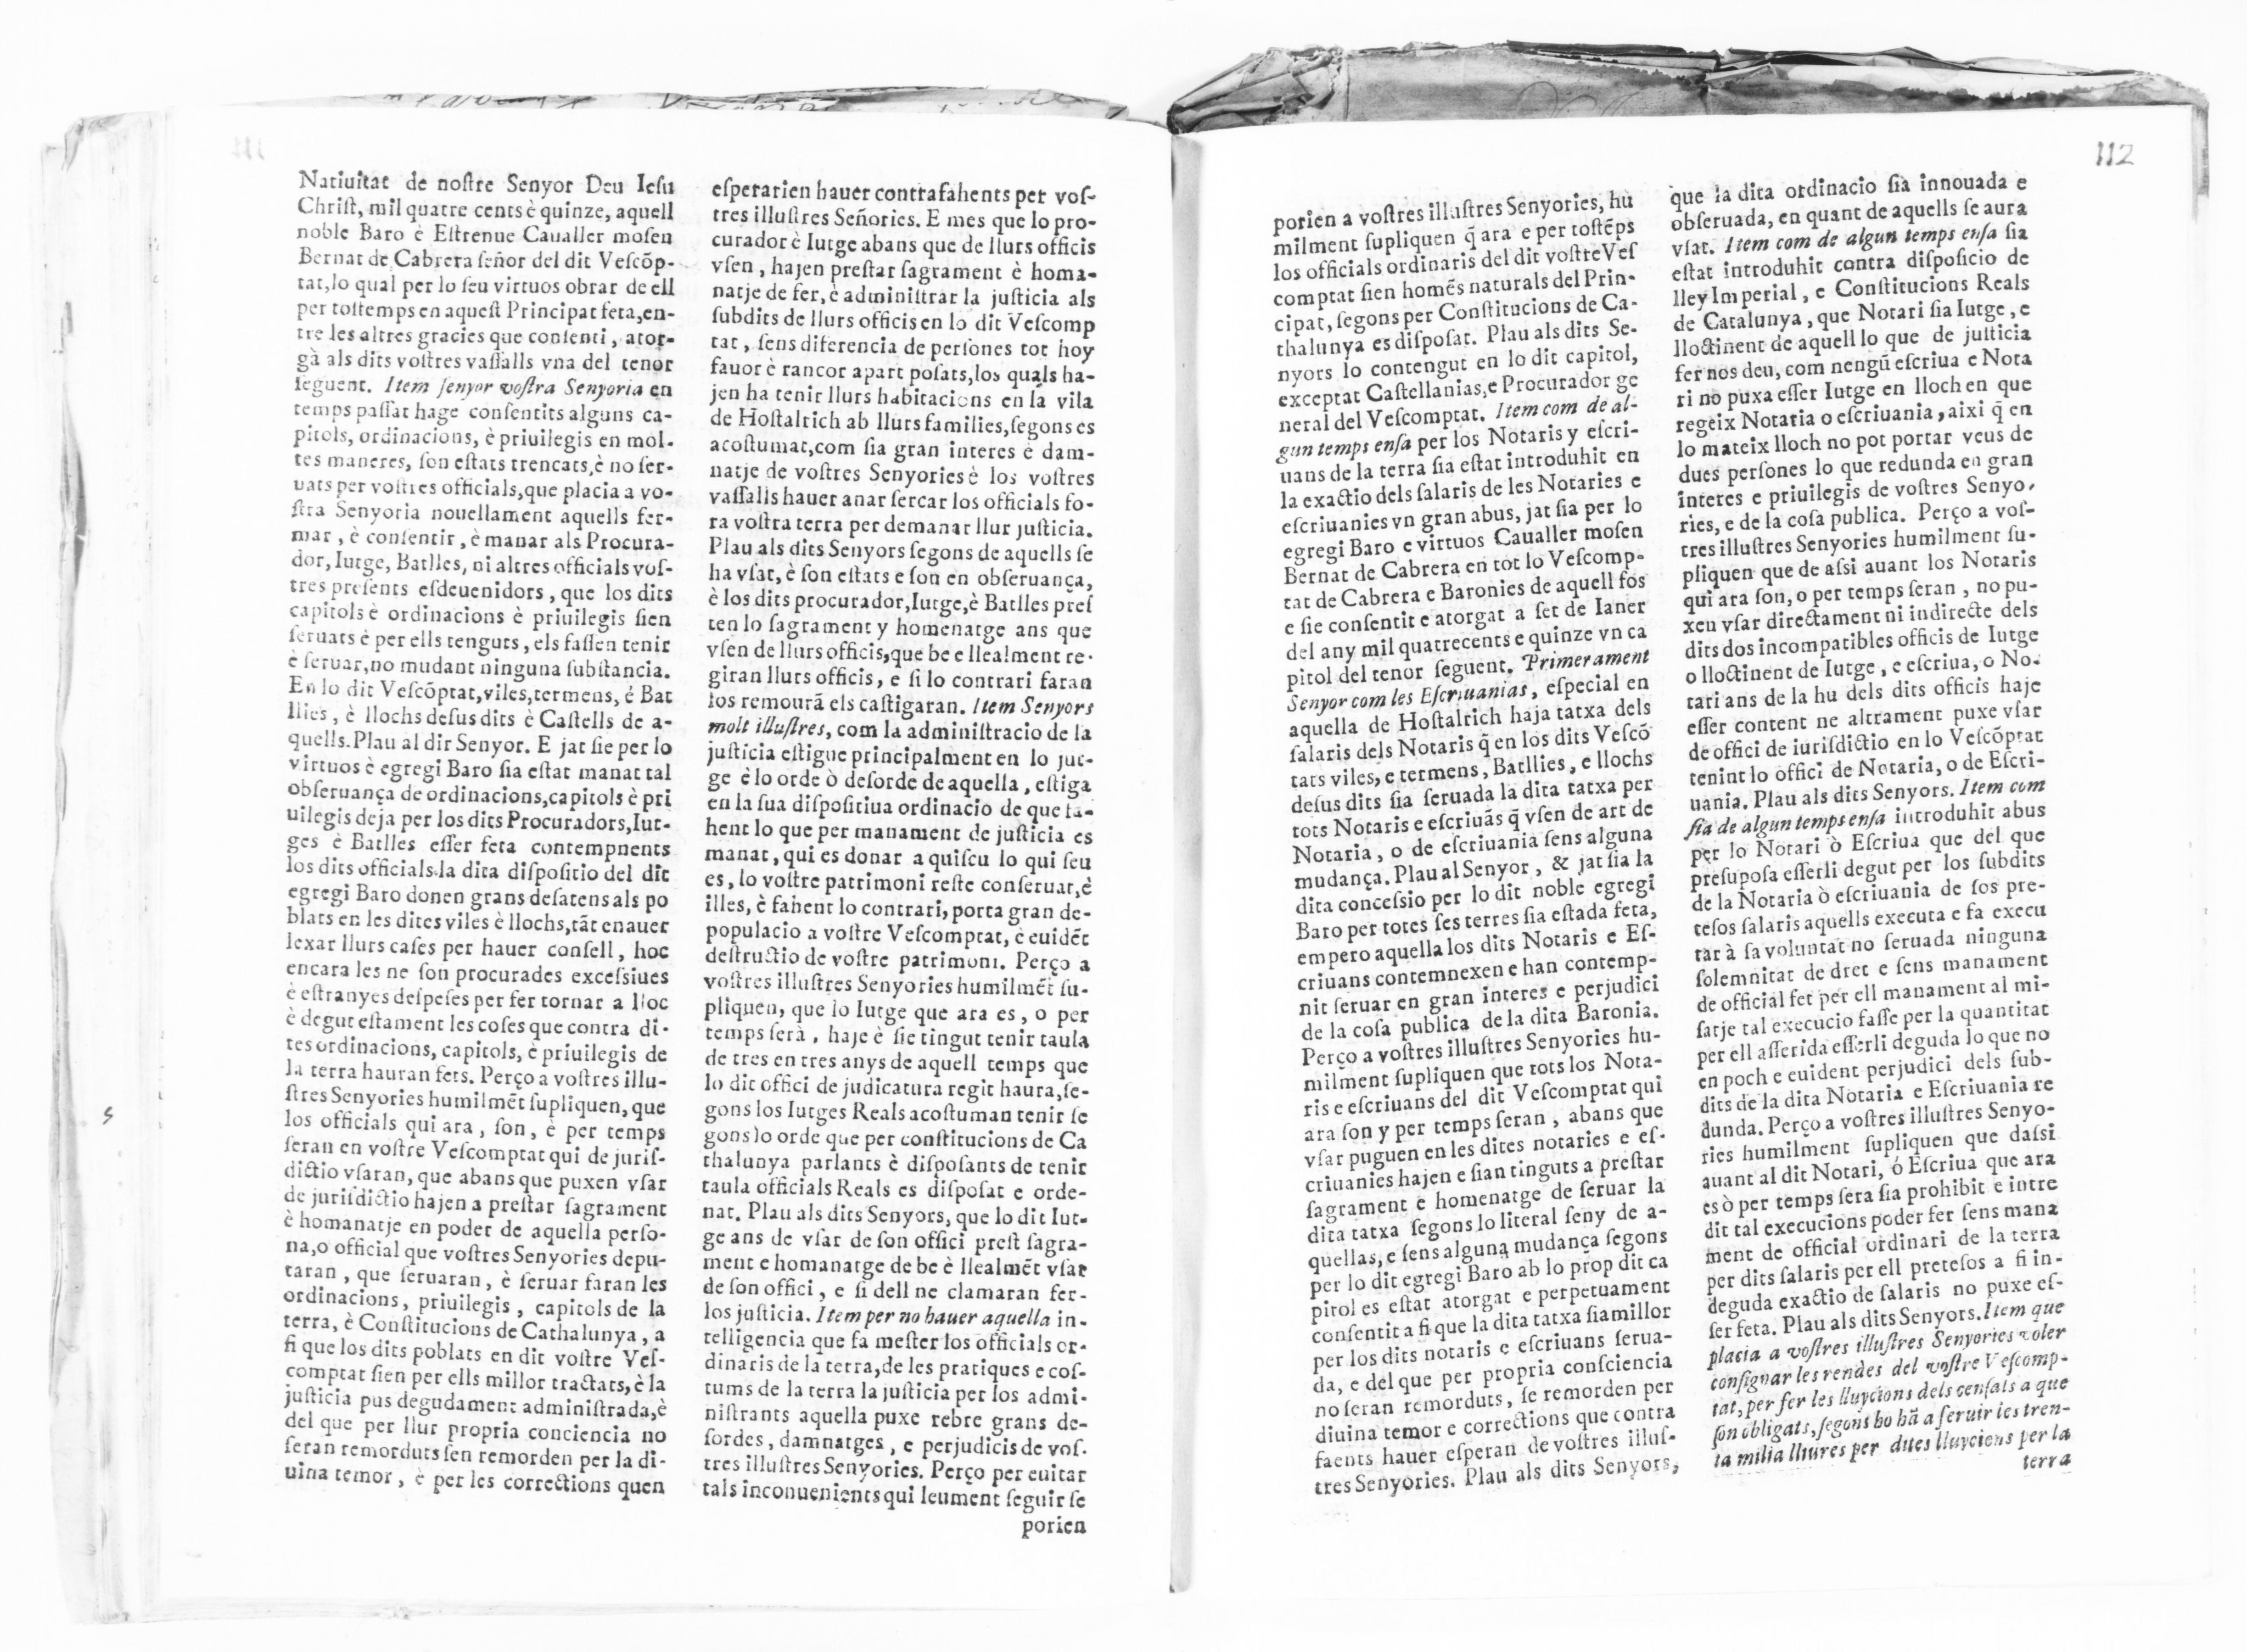 Natiuitat de nostre Senyor Deu Iesu
Christ, mil quatre cents è quinze, aquell
noble Baro è Estrenue Caualler mosen
Bernat de Cabrera señor del dit Vescõp-
tat, lo qual per lo seu virtuos obrar de ell
per tostemps en aquest Principat feta, en-
tre les altres gracies que consenti, ator-
gà als dits vostres vassalls vna del tenor
seguent. Item senyor vostra Senyoria en
temps passat hage consentits alguns ca-
pitols, ordinacions, è priuilegis en mol-
tes maneres, son estats trencats, è no ser-
uats per vostres officials, que placia a vo-
stra Senyoria nouellament aquells fer-
mar, è consentir, è manar als Procura-
dor, Iutge, Batlles, ni altres officials vos-
tres presents esdeuenidors, que los dits
capitols è ordinacions è priuilegis sien
seruats è per ells tenguts, els fassen tenir
è seruar, no mudant ninguna substancia.
En lo dit Vescõptat, viles, termens, é Bat
llies, è llochs desus dits è Castells de a-
quells. Plau al dir Senyor. E jat sie per lo
virtuos è egregi Baro sia estat manat tal
obseruança de ordinacions, capitols è pri
uilegis deja per los dits Procuradors, Iut-
ges è Batlles esser feta contempnents
los dits officials la dita dispositio del dit
egregi Baro donen grans desatens als po
blats en les dites viles è llochs, tãt enauer
lexar llurs cases per hauer consell, hoc
encara les ne son procurades excessiues
è estranyes despeses per fer tornar a lloc
è degut estament les coses que contra di-
tes ordinacions, capitols, è priuilegis de
la terra hauran fets. Perço a vostres illu-
stres Senyories humilmẽt supliquen, que
los officials qui ara, son, è per temps
seran en vostre Vescomptat qui de juris-
dictio vsaran, que abans que puxen vsar
de jurisdictio hajen a prestar sagrament
è homanatje en poder de aquella perso-
na, o official que vostres Senyories depu-
taran, que seruaran, è seruar faran les
ordinacions, priuilegis, capitols de la
terra, è Constitucions de Cathalunya, a
fi que los dits poblats en dit vostre Ves-
comptat sien per ells millor tractats, è la
justicia pus degudament administrada, è
del que per llur propria conciencia no
seran remorduts sen remorden per la di-
uina temor, è per les corrections quen
esperarien hauer contrafahents per vos-
tres illustres Señories. E mes que lo pro-
curador è Iutge abans que de llurs officis
vsen, hajen prestar sagrament è homa-
natje de fer, è administrar la justicia als
subdits de llurs officis en lo dit Vescomp
tat, sens diferencia de persones tot hoy
fauor è rancor apart posats, los quals ha-
jen ha tenir llurs habitacions en la vila
de Hostalrich ab llurs families, segons es
acostumat, com sia gran interes è dam-
natje de vostres Senyories è los vostres
vassalls hauer anar sercar los officials fo-
ra vostra terra per demanar llur justicia.
Plau als dits Senyors segons de aquells se
ha vsat, è son estats e son en obseruança,
è los dits procurador, Iutge, è Batlles pres
ten lo sagrament y homenatge ans que
vsen de llurs officis, que be e llealment re-
giran llurs officis, e si lo contrari faran
los remourã els castigaran. Item Senyors
molt illustres, com la administracio de la
justicia estigue principalment en lo jut-
ge è lo orde ò desorde de aquella, estiga
en la sua dispositiua ordinacio de que fa-
hent lo que per manament de justicia es
manat, qui es donar a quiscu lo qui seu
es, lo vostre patrimoni reste conseruat, è
illes, è fahent lo contrari, porta gran de-
populacio a vostre Vescomptat, è euidẽt
destructio de vostre patrimoni. Perço a
vostres illustres Senyories humilmẽt su-
pliquen, que lo Iutge que ara es, o per
temps serà, haje è sie tingut tenir taula
de tres en tres anys de aquell temps que
lo dit offici de judicatura regit haura, se-
gons los Iutges Reals acostuman tenir se
gons lo orde que per constitucions de Ca
thalunya parlants è disposants de tenir
taula officials Reals es disposat e orde-
nat. Plau als dits Senyors, que lo dit Iut-
ge ans de vsar de son offici prest sagra-
ment e homanatge de be è llealmẽt vsar
de son offici, e si dell ne clamaran fer-
los justicia. Item per no hauer aquella in-
telligencia que fa mester los officials or-
dinaris de la terra, de les pratiques e cos-
tums de la terra la justicia per los admi-
nistrants aquella puxe rebre grans de-
sordes, damnatges, e perjudicis de vos-
tres illustres Senyories. Perço per euitar
tals inconuenients qui leument seguir se
porien
112
porien a vostres illustres Senyories, hu
milment supliquen q̃ ara e per tostẽps
los officials ordinaris del dit vostre Ves
comptat sien homẽs naturals del Prin-
cipat, segons per Constitucions de Ca-
thalunya es disposat. Plau als dits Se-
nyors lo contengut en lo dit capitol,
exceptat Castellanias, e Procurador ge
neral del Vescomptat. Item com de al-
gun temps ensa per los Notaris y escri-
uans de la terra sia estat introduhit en
la exactio dels salaris de les Notaries e
escriuanies vn gran abus, jat sia per lo
egregi Baro e virtuos Caualler mosen
Bernat de Cabrera en tot lo Vescomp-
tat de Cabrera e Baronies de aquell fos
e sie consentit e atorgat a set de Ianer
del any mil quatrecents e quinze vn ca
pitol del tenor seguent. Primerament
Senyor com les Escriuanias, especial en
aquella de Hostalrich haja tatxa dels
salaris dels Notaris q̃ en los dits Vescõ
tats viles, e termens, Batllies, e llochs
desus dits sia seruada la dita tatxa per
tots Notaris e escriuãs q̃ vsen de art de
Notaria, o de escriuania sens alguna
mudança. Plau al Senyor, & jat sia la
dita concessio per lo dit noble egregi
Baro per totes ses terres sia estada feta,
empero aquella los dits Notaris e Es-
criuans contemnexen e han contemp-
nit seruar en gran interes e perjudici
de la cosa publica de la dita Baronia.
Perço a vostres illustres Senyories hu-
milment supliquen que tots los Nota-
ris e escriuans del dit Vescomptat qui
ara son y per temps seran, abans que
vsar puguen en les dites notaries e es-
criuanies hajen e sian tinguts a prestar
sagrament e homenatge de seruar la
dita tatxa segons lo literal seny de a-
quellas, e sens alguna mudança segons
per lo dit egregi Baro ab lo prop dit ca
pitol es estat atorgat e perpetuament
consentit a fi que la dita tatxa sia millor
per los dits notaris e escriuans serua-
da, e del que per propria consciencia
no seran remorduts, se remorden per
diuina temor e corrections que contra
faents hauer esperan de vostres illus-
tres Senyories. Plau als dits Senyors,
que la dita ordinacio sia innouada e
obseruada, en quant de aquells se aura
vsat. Item com de algun temps ensa sia
estat introduhit contra disposicio de
lley Imperial, e Constitucions Reals
de Catalunya, que Notari sia Iutge, e
lloctinent de aquell lo que de justicia
fer nos deu, com nengũ escriua e Nota
ri no puxa esser Iutge en lloch en que
regeix Notaria o escriuania, aixi q̃ en
lo mateix lloch no pot portar veus de
dues persones lo que redunda en gran
interes e priuilegis de vostres Senyo-
ries, e de la cosa publica. Perço a vos-
tres illustres Senyories humilment su-
pliquen que de assi auant los Notaris
qui ara son, o per temps seran, no pu-
xen vsar directament ni indirecte dels
dits dos incompatibles officis de Iutge
o lloctinent de Iutge, e escriua, o No-
tari ans de la hu dels dits officis haje
esser content ne altrament puxe vsar
de offici de iurisdictio en lo Vescõptat
tenint lo offici de Notaria, o de Escri-
uania. Plau als dits Senyors. Item com
sia de algun temps ensa introduhit abus
per lo Notari ò Escriua que del que
presuposa esserli degut per los subdits
de la Notaria ò escriuania de sos pre-
tesos salaris aquells executa e fa execu
tar à sa voluntat no seruada ninguna
solemnitat de dret e sens manament
de official fet per ell manament al mi-
satje tal execucio fasse per la quantitat
per ell asserida esserli deguda lo que no
en poch e euident perjudici dels sub-
dits de la dita Notaria e Escriuania re
dunda. Perço a vostres illustres Senyo-
ries humilment supliquen que dassi
auant al dit Notari, ó Escriua que ara
es ò per temps sera sia prohibit e intre
dit tal execucions poder fer sens mana
ment de official ordinari de la terra
per dits salaris per ell pretesos a fi in-
deguda exactio de salaris no puxe es-
ser feta. Plau als dits Senyors. Item que
placia a vostres illustres Senyories voler
consignar les rendes del vostre Vescomp-
tat, per fer les lluycions dels censals a que
son obligats, segons ho hã a seruir les tren-
ta milia lliures per dites lluycions per la
terra